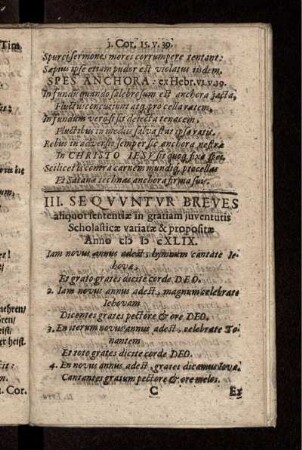 1. Cor. 15. v. 30.
Spurci sermones mores corrumpere tentant:
Sæpius ipse etiam pudor est violatus iisdem.
SPES ANCHORA: ex Hebr. vi. v. 19.
In fundi quando salebrosum est anchora jacta,
In fundum
Fluctibus in mediis salva stat ipsa ratis.
Rebus in adversis semper sic anchora nostra
In CHRISTO IESV sit quoq; fixa spei.
Scilicet contra carnem mundiq; procellas
Et Satanæ technas anchora firma suis.
III. SEQVVNTVR BREVES
aliquot sententiæ in gratiam juventutis
Scholasticæ variatæ & propositæ
Anno cIɔ Iɔ cXLIX.
Iam novus annus adest, hymnum cantate Ie-
hovæ,
Et grato grates dicite corde DEO.
2. Iam novus annus adest, magnum celebrate
Iehovam
Dicentes grates pectore & ore DEO.
3. En iterum novus annus adest, celebrate To-
nantem
Et toto grates dicite corde DEO.
4. En novus annus adest, grates dicamus Iovæ,
Cantantes gratum pectore & ore melos.
C
Ex
Tim.
Cor.